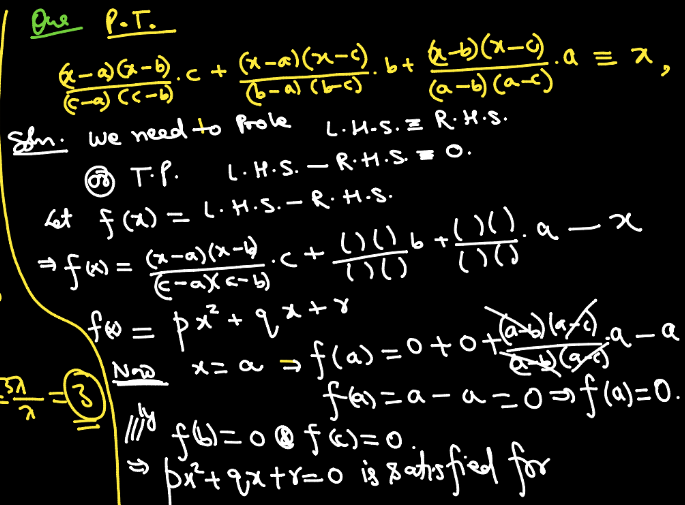 Que P.T.
(x-a)(x-b)/(c-a)(c-b) . c + (x-a)(x-c)/(b-a)(b-c) . b + (x-b)(x-c)/(a-b)(a-c) . a ≡ x,
Soln. We need to Prove L.H.S. ≡ R.H.S.
or T.P. L.H.S. - R.H.S. = 0.
Let f(x) = L.H.S. - R.H.S.
⇒ f(x) = (x-a)(x-b)/(c-a)(c-b) . c + ( )( )/( )( ) b + ( )( )/( )( ) . a - x
f(x) = px² + qx + r
Now x = a ⇒ f(a) = 0 + 0 + (a-b)(a-c)/(a-b)(a-c) . a - a
f(a) = a - a = 0 ⇒ f(a) = 0.
3λ/λ = 3
|||ly f(b) = 0 & f(c) = 0.
⇒ px² + qx + r = 0 is satisfied for